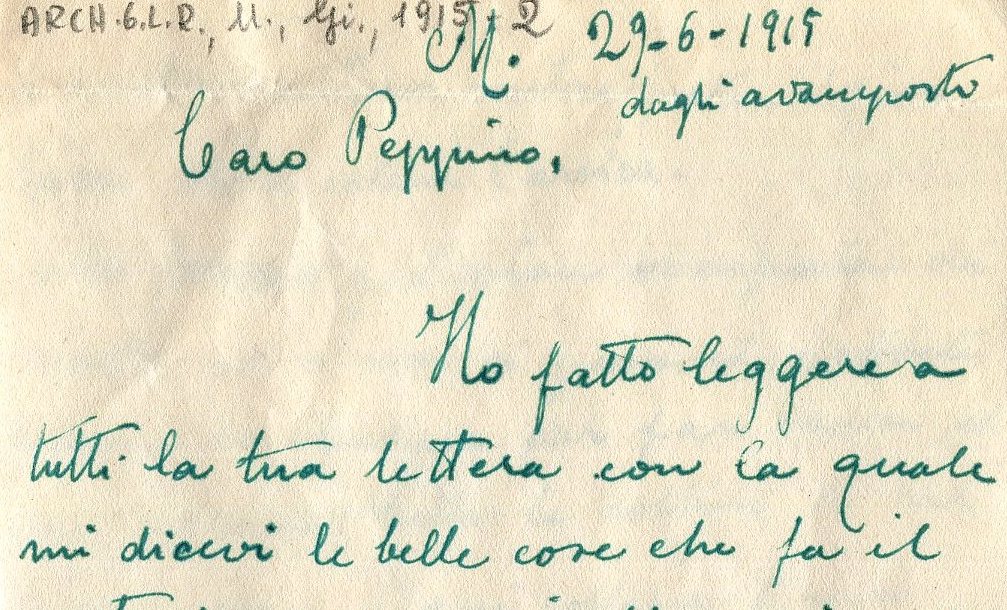 ARCH. G.L.R., U., Gi., 1915, 2
M. 29-6-1915
dagli avamposti
Caro Peppino,
Ho fatto leggere a
tutti la tua lettera con la quale
mi dicevi le belle cose che fa il